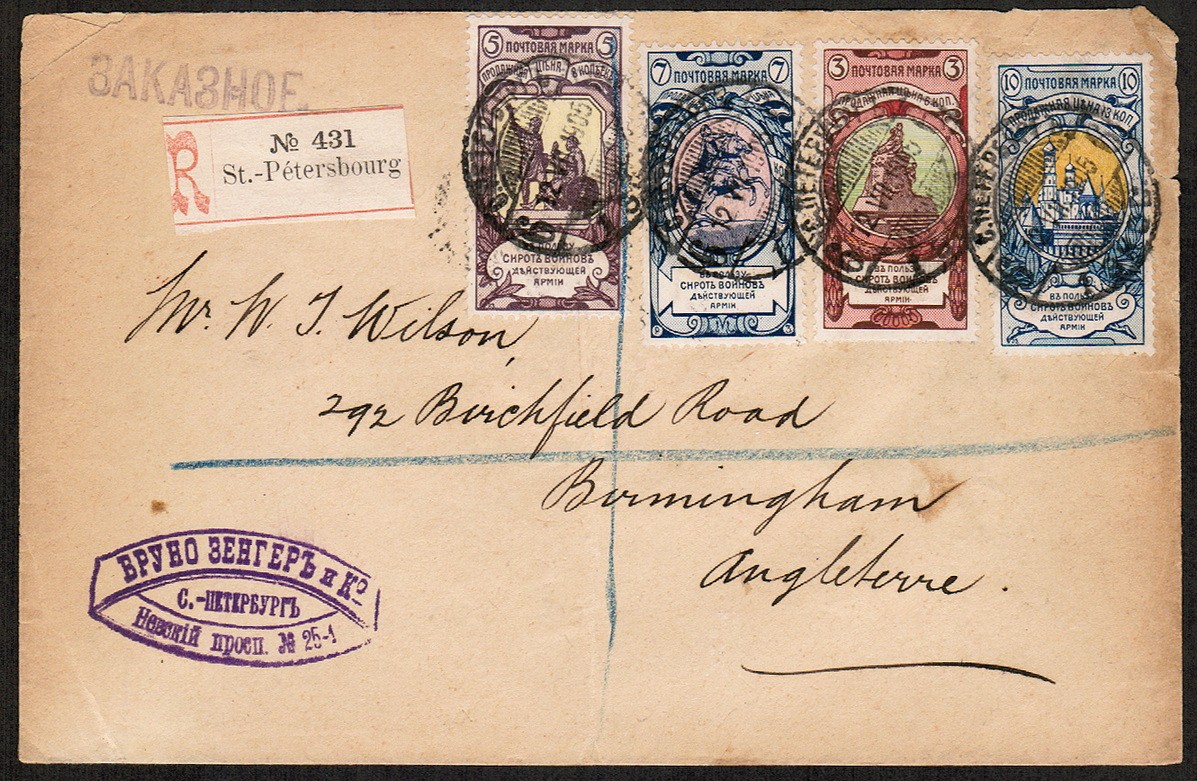 ЗАКАЗНОЕ
R
№ 431
St.-Pétersbourg
5 ПОЧТОВАЯ МАРКА 5
ПРОДАЖНАЯ ЦѢНА
СИРОТЪ ВОИНОВЪ
ДѢЙСТВУЮЩЕЙ
АРМІИ
7 ПОЧТОВАЯ МАРКА 7
ВЪ ПОЛЬЗУ
СИРОТЪ ВОИНОВЪ
ДѢЙСТВУЮЩЕЙ
АРМІИ
3 ПОЧТОВАЯ МАРКА 3
ПРОДАЖНАЯ ЦѢНА КОП.
ВЪ ПОЛЬЗУ
СИРОТЪ ВОИНОВЪ
ДѢЙСТВУЮЩЕЙ
АРМІИ
10 ПОЧТОВАЯ МАРКА 10
ПРОДАЖНАЯ ЦѢНА 13 КОП.
ВЪ ПОЛЬЗУ
СИРОТЪ ВОИНОВЪ
ДѢЙСТВУЮЩЕЙ
АРМІИ
Mr. W. J. Wilson,
292 Birchfield Road
Birmingham
Angleterre.
БРУНО ЗЕНГЕРЪ и Ко
С.-ПЕТЕРБУРГЪ
Невскій просп. № 25-1